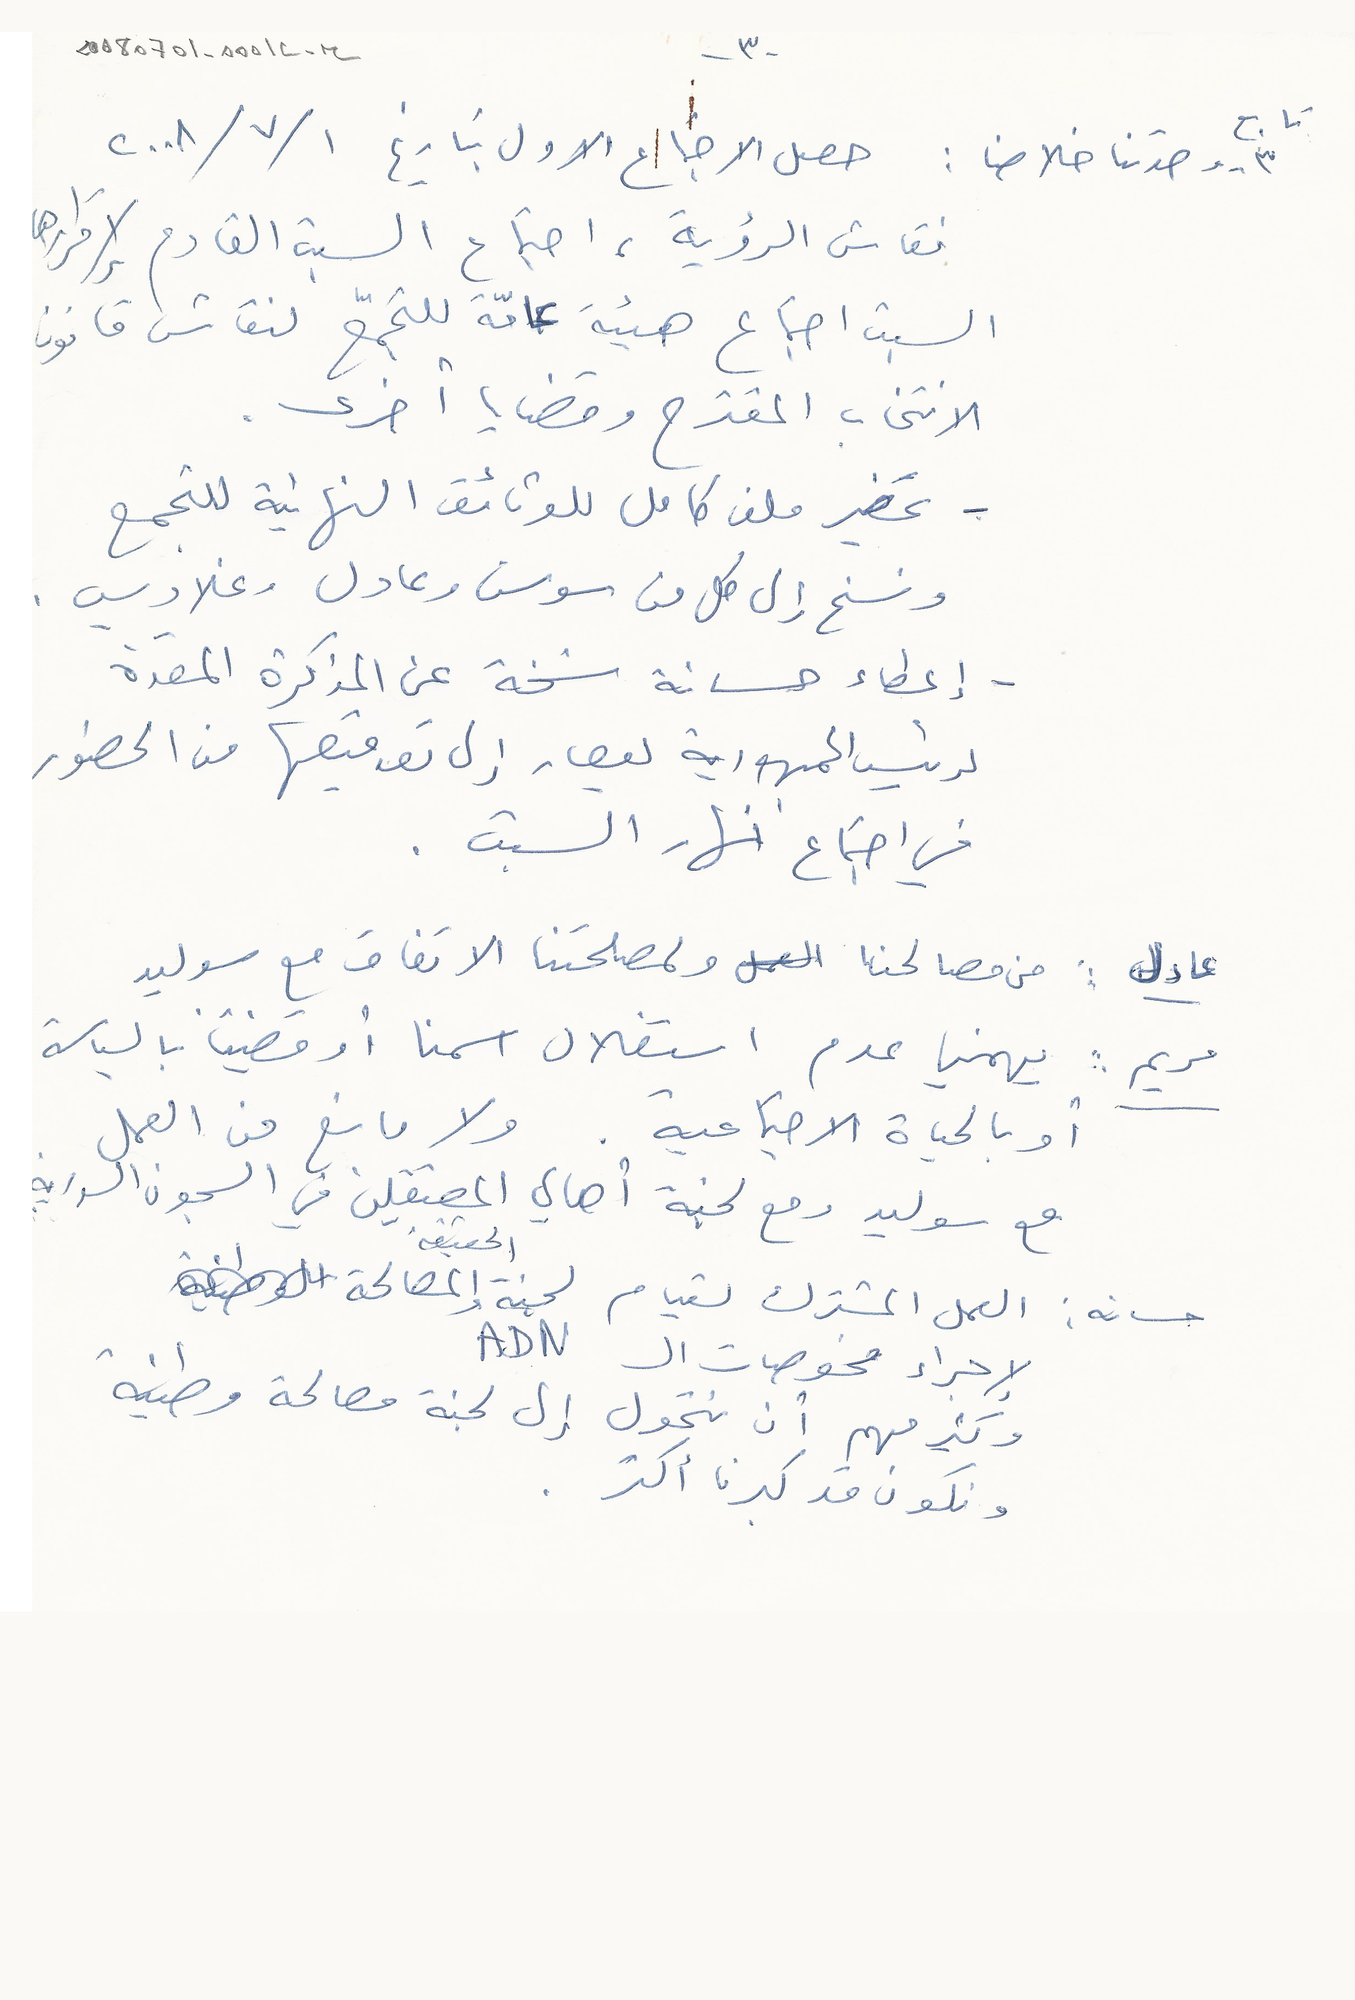 20080701-00012-03
-٣-
تابع
٣- وحدتنا خلاصنا : حصل الاجتماع الاول بتاريخ ١/٧/٢٠٠٨
نقاش الرؤية ، اجتماع السبت القادم لإقرارها
السبت اجتماع هيئة عامّة للتجمّع لنقاش قانون
الانتخاب المقترح وقضايا أخرى .
- تحضير ملف كامل للوثائق النهائية للتجمع
ونسخ إلى كل من سوسن وعادل وغلاديس .
- إعطاء حسانة نسخة عن المذكرة المقدمة
لرئيس الجمهورية ليصار إلى توقيعها من الحضور
في اجتماع نهار السبت .
عادل : من مصالحنا العمل ولمصلحتنا الاتفاق مع سوليد
مريم : يهمنا عدم استغلال اسمنا أو قضيتنا بالسياسة
أو بالحياة الاجتماعية . ولا مانع من العمل
مع سوليد ومع لجنة أهالي المعتقلين في السجون السورية
الحقيقة
حسانه : العمل المشترك لقيام لجنة والمصالحة الوطنية
لإجراء فحوصات الـ ADN
وكثير مهم أن نتحول إلى لجنة مصالحة وطنية
ونكون قد كبرنا أكثر .